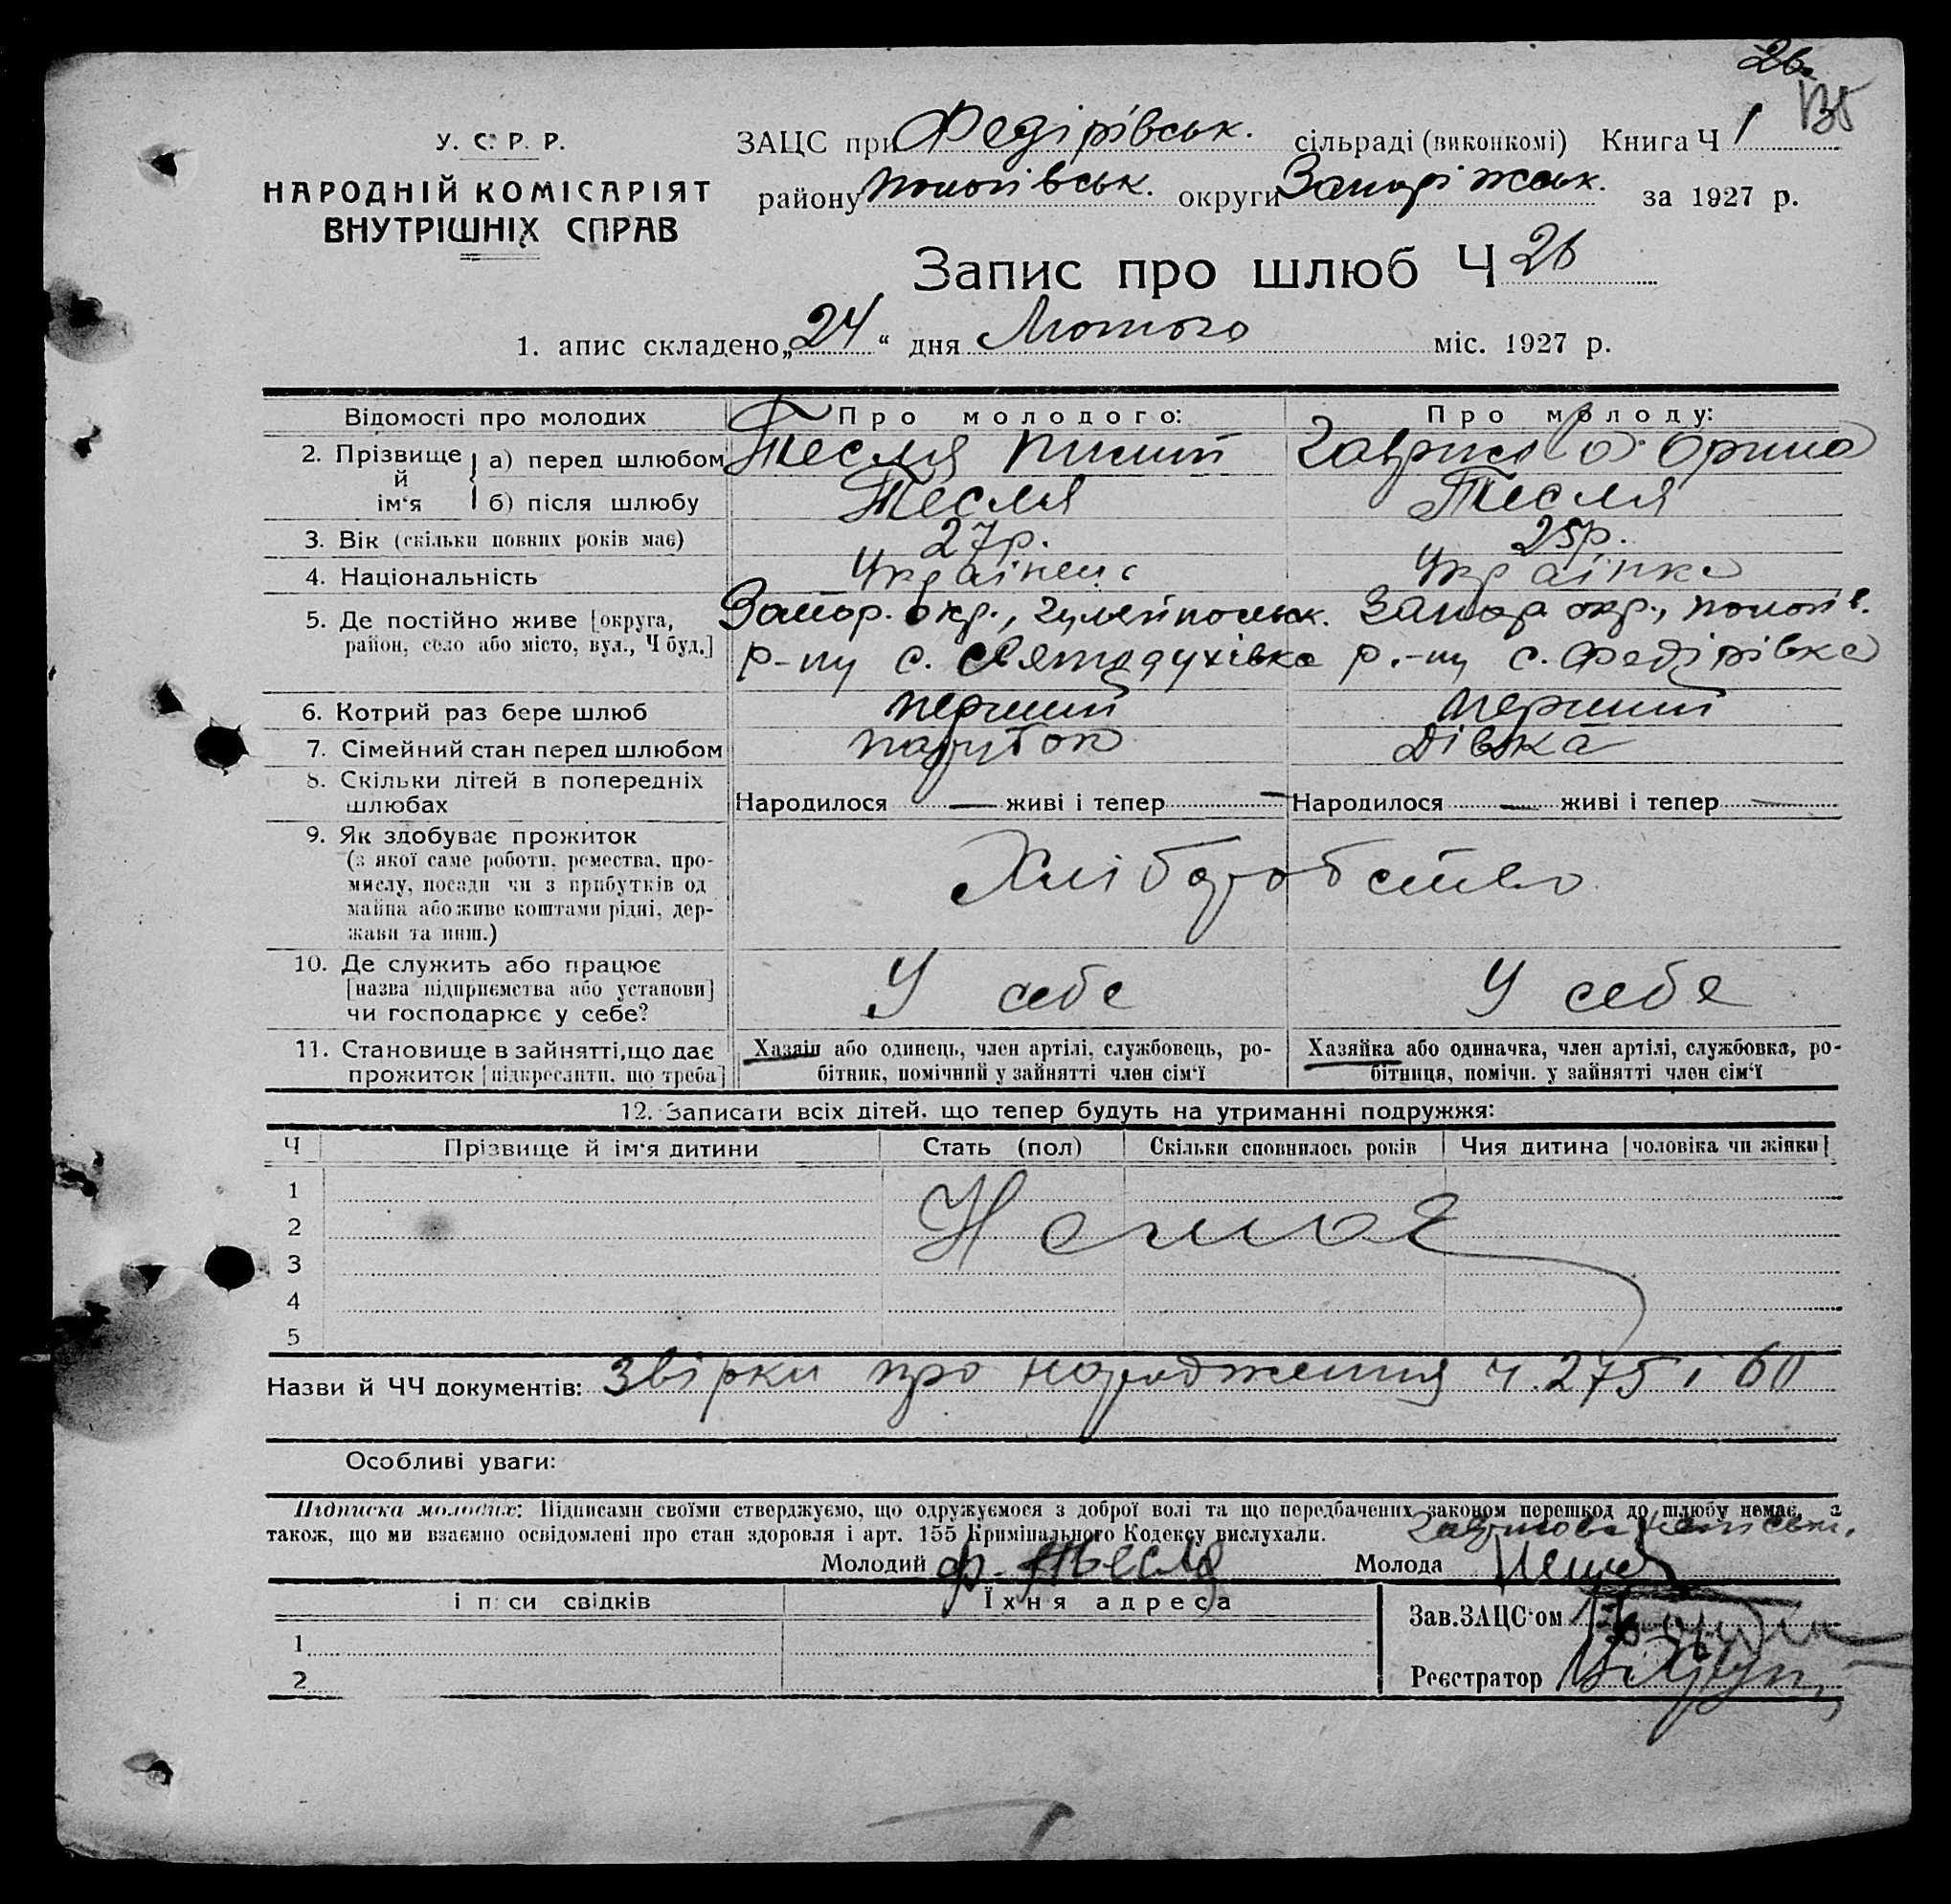 26.
У. С. Р. Р.
НАРОДНІЙ КОМІСАРІЯТ
ВНУТРІШНІХ СПРАВ
ЗАЦС при Федірівськ. сільраді (виконкомі) Книга Ч 1
району пологівськ. округи Запоріжськ. за 1927 р.
Запис про шлюб Ч 26
1. апис складено „24“ дня Лютого міс. 1927 р.
Відомості про молодих
Про молодого:
Про молоду:
2. Прізвище й ім‘я
а) перед шлюбом
Тесля
Гаврилова Орина
б) після шлюбу
Тесля
Тесля
3. Вік (скільки повних років має)
27р.
25р.
4. Національність
Українець
Українка
5. Де постійно живе [округа,
район, село або місто, вул., Ч буд.]
Запор. окр., Гуляйпольськ.
р-ну с. Святодухівка
Запор. окр., пологів.
р.-ну с. Федірівка
6. Котрий раз бере шлюб
перший
перший
7. Сімейний стан перед шлюбом
парубок
Дівка
8. Скільки дітей в попередніх
шлюбах
Народилося — живі і тепер —
Народилося — живі і тепер —
9. Як здобуває прожиток
(з якої саме роботи, ремества, про-
мислу, посади чи з прибутків од
майна або живе коштами рідні, дер-
жави та инш.)
Хліборобство
10. Де служить або працює
[назва підприємства або установи]
чи господарює у себе?
У себе
У себе
11. Становище в зайнятті, що дає
прожиток [підкреслити, що треба]
Хазяїн або одинець, член артілі, службовець, ро-
бітник, помічний у зайнятті член сім‘ї
Хазяйка або одиначка, член артілі, службовка, ро-
бітниця, помічн. у зайнятті член сім‘ї
12. Записати всіх дітей, що тепер будуть на утриманні подружжя:
Ч Прізвище й ім‘я дитини Стать (пол) Скільки сповнилось років Чия дитина [чоловіка чи жінки]
1
2
Немає
3
4
5
Назви й ЧЧ документів: Звірки про народження ч. 275 і 60
Особливі уваги:
Підписка молодих: Підписами своїми стверджуємо, що одружуємося з доброї волі та що передбачених законом перешкод до шлюбу немає, а
також, що ми взаємно освідомлені про стан здоровля і арт. 155 Кримінального Кодексу вислухали.
Молодий Ф. Тесля Молода
і п си свідків
Їхня адреса
Зав.ЗАЦС‘ом
1
Реєстратор
2